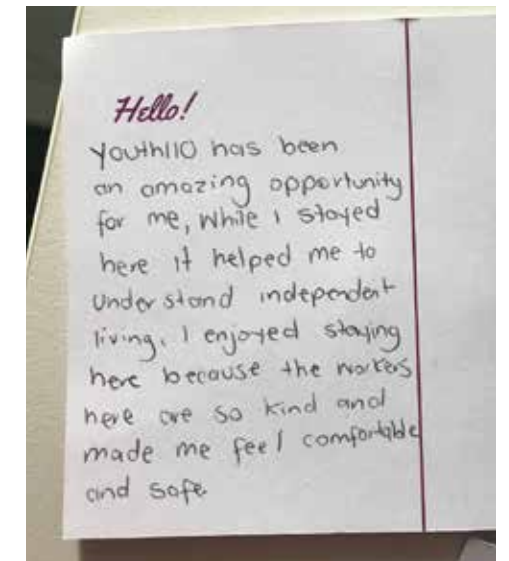 Hello!
Youth110 has been
an amazing opportunity
for me, while i stayed
here it helped me to
understand independent
living. I enjoyed staying
here because the workers
here are so kind and
made me feel comfortable
and safe.